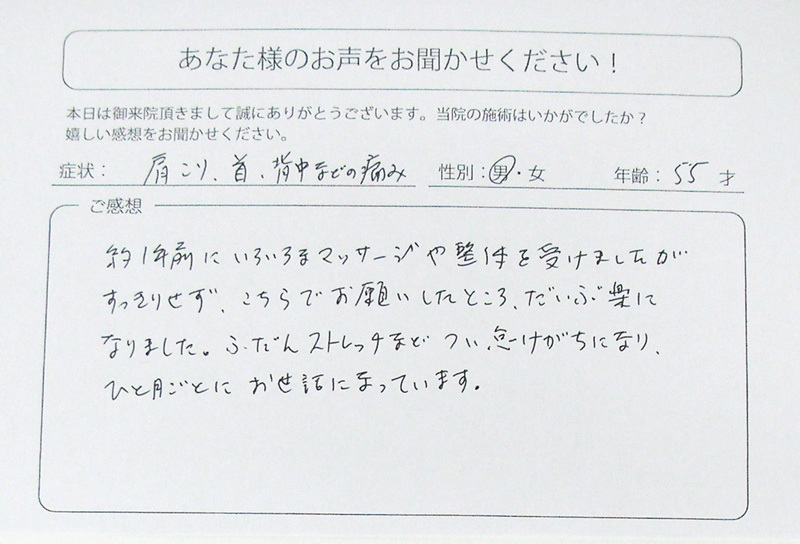 あなた様のお声をお聞かせください！
本日は御来院頂きまして誠にありがとうございます。当院の施術はいかがでしたか？
嬉しい感想をお聞かせください。
症状： 肩こり、首、背中などの痛み 性別：男・女 年齢：55才
ご感想
約1年前にいろいろなマッサージや整体を受けましたが
すっきりせず、こちらでお願いしたところ、だいぶ楽に
なりました。ふだんストレッチなど つい怠けがちになり、
ひと月ごとに お世話になっています。